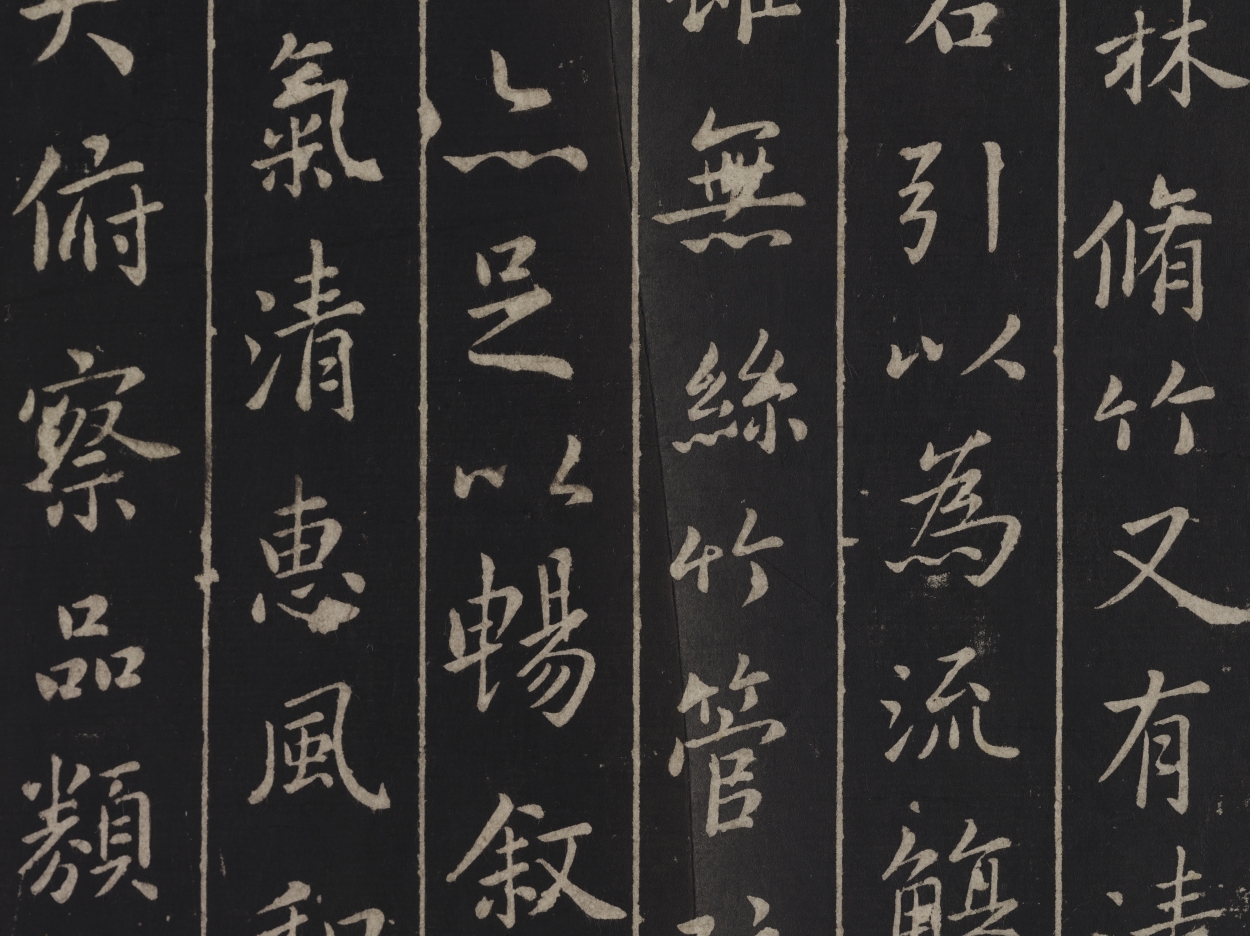 林脩竹又有清
右引以為流觴
雖無絲竹管弦
亦足以暢敘
氣清惠風和
大俯察品類